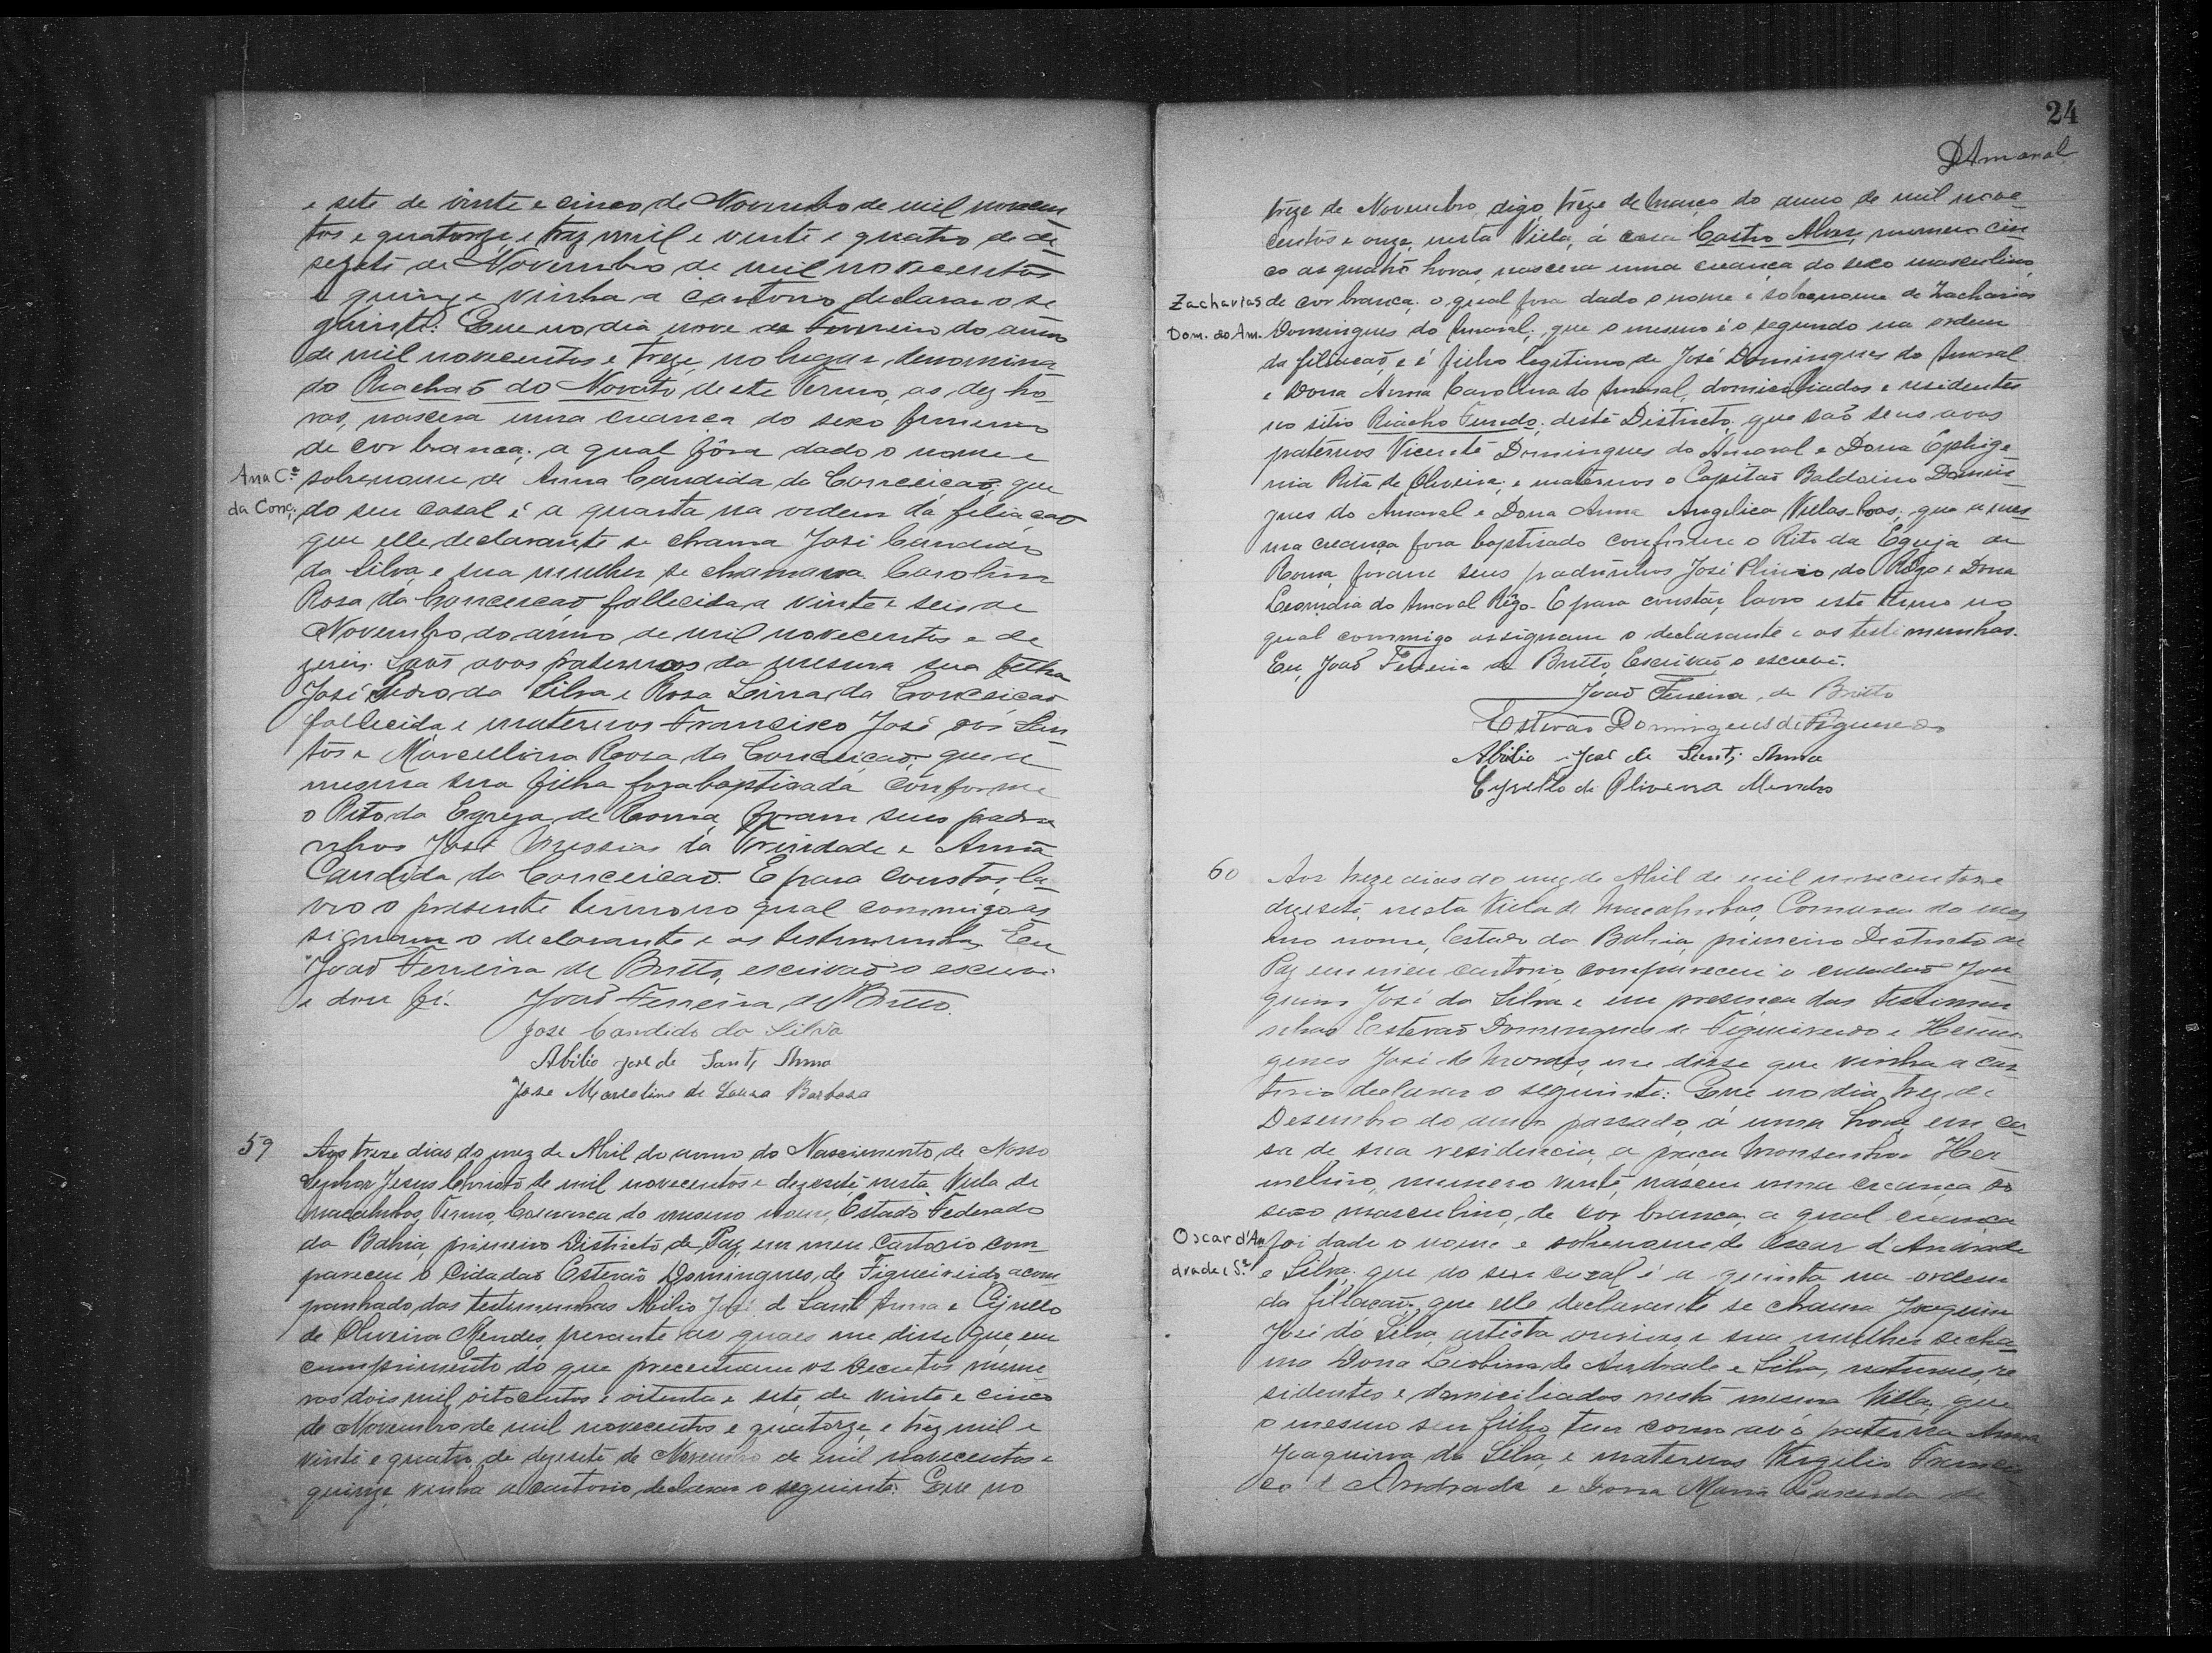 e sete de vinte e cinco de Novembro de mil novecen
tos e quatorze, e trez mil e vinte e quatro de de
sesete de Novembro de mil novecentos
e quinze vinha a cartorio declarar o se
guinte: Que no dia nove de Fevereiro do anno
de mil novecentos e treze, no lugar denomina
do Riachaõ do Novato, deste Termo, as dez ho
ras, nascera uma creança do sexo feminino
de cor branca; a qual fôra dado o nome e
Ana C.ª
da Conç.
sobrenome de Anna Candida da Conceicaõ, que
do seu casal é a quarta na ordem da filiação
que elle declarante se chama José Candido
da Silva, e sua mulher se chamava Carolina
Rosa da Conceicaõ, fallecida a vinte e seis de
Novembro do anno de mil novecentos e de
zeseis. Saõ avos paternos da mesma sua filha
José Pedro da Silva e Rosa da Conceicaõ
fallecida, e maternos Francisco José dos San
tos e Marcellina Rosa da Conceicaõ; que a
mesma sua filha fora baptisada conforme
o Rito da Egreja de Roma, foram seus padri
nhos José Messias da Trindade e Anna
Candida da Conceicaõ. E para constar, la
vro o presente termo no qual commigo as
signam o declarante e as testemunhas. Eu
João Ferreira de Britto, escrivaõ o escrevi
e dou fé. João Ferreira de Britto.
José Candido da Silva
Abilio José de Sant'Anna
José Marcelino de Souza Barbosa
59 Aos treze dias do mez de Abril do anno do Nascimento de Nosso
Senhor Jesus Christo de mil novecentos e dezesete, nesta Villa de
Macahubas, Termo, Comarca do mesmo nome, Estado Federado
da Bahia, primeiro Districto de Paz, em meu Cartorio com
pareceu o Cidadaõ Estevaõ Domingues de Figueiredo acom
panhado das testemunhas Abilio José de Sant'Anna e Cyrillo
de Oliveira Mendes, perante as quaes me disse que, em
cumprimento do que preceituam os Decretos nume
ros dois mil, oitocentos e oitenta e sete, de vinte e cinco
de Novembro de mil novecentos e quatorze, e trez mil e
vinte e quatro, de dezesete de Novembro de mil novecentos e
quinze, vinha a cartorio, declarar o seguinte: Que no
24
DAmaral
treze de Novembro, digo, treze de Março do anno de mil nove
centos e onze, nesta Villa, á casa Castro Alves, numero cin
co as quatro horas, nascera uma creança do sexo masculino,
Zacharias
Dom. do Am.
de cor branca; o qual fora dado o nome e sobrenome de Zacharias
Domingues do Amaral; que o mesmo é o segundo na ordem
da filiacaõ, e é filho legitimo de José Domingues do Amaral
e Dona Anna Carolina do Amaral, domiciliados e residentes
no sitio Riacho Fundo, deste Districto; que saõ seus avos
paternos Vicente Domingues do Amaral e Dona Ephige
nia Rita de Oliveira; e maternos o Capitaõ Baldoino Domin
gues do Amaral e Dona Anna Angelica Villas-boas; que a mes
ma creança fora baptisado conforme o Rito da Egreja de
Roma, foram seus padrinhos José Plinio do Rêgo e Dona
Leonidia do Amaral Rêgo. E para constar, lavro este termo no
qual commigo assignam o declarante e as testemunhas.
Eu, João Ferreira de Britto, Escrivaõ o escrevi.
João Ferreira de Britto
Estevão Domingues de Figueiredo
Abilio José de Sant'Anna
Cyrillo de Oliveira Mendes
60 Aos treze dias do mez de Abril de mil novecentos e
dezesete, nesta Villa de Macahubas, Comarca do mes
mo nome, Estado da Bahia, primeiro Districto de
Paz em meu cartorio, compareceu o cidadaõ Joa
quim José da Silva e em presença das testemu
nhas Estevaõ Domingues de Figueiredo e Hermo
genes José de Moraes, me disse que vinha a car
torio declarar o seguinte: Que no dia trez de
Desembro do anno passado, á uma hora, em ca
sa de sua residencia, a praça Monsenhor Her
melino, numero vinte, nasceu uma creança do
sexo masculino, de cor branca, a qual creança
Oscar d'An
drade e S.ª
foi dado o nome e sobrenome de Oscar d'Andrade
e Silva; que do seu casal é a quinta na ordem
da filiacaõ; que elle declarante se chama Joaquim
José da Silva, artista ourives, e sua mulher se cha
ma Dona Leolina de Andrade e Silva, naturaes, re
sidentes e domiciliados nesta mesma Villa, que
o mesmo seu filho tem como avó paterna Anna
Joaquina da Silva, e maternos Virgilio Francis
co d'Andrade e Dona Maria de